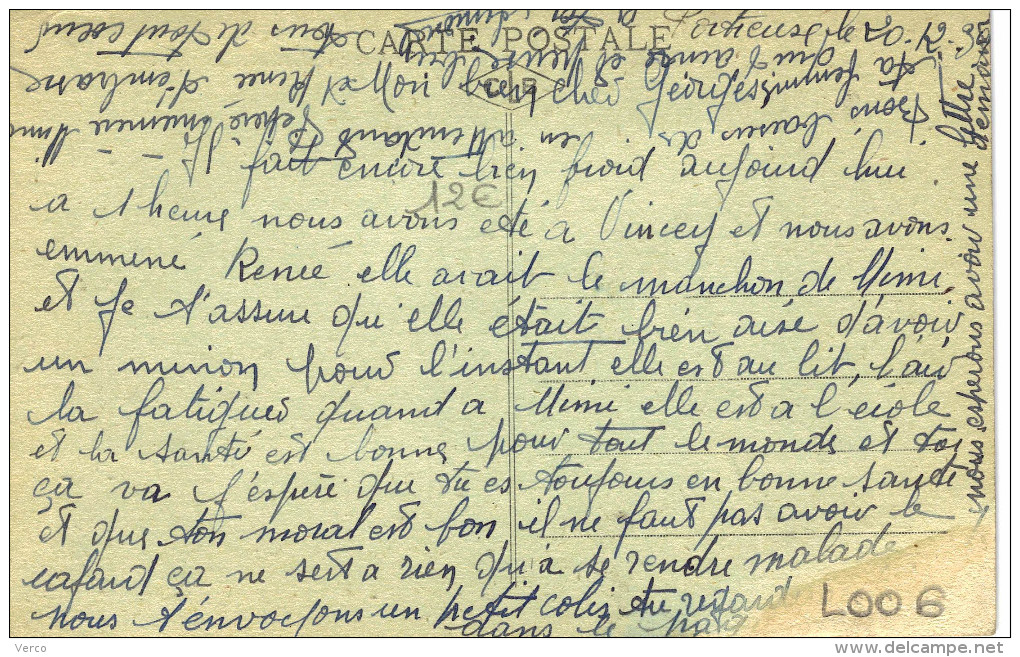 CARTE POSTALE
CLB
Mon bien cher Georges
Il fait encore bien froid aujourd hui.
a 1 heure nous avons été a Vincey et nous avons
emmené Renée elle avait le manchon de Mimi
et je t'assure qu'elle était bien aise d'avoir
un minion pour l'instant elle est au lit, l'air
la fatigues quand a Mimi elle est a l'école
et la santé est bonne pour tout le monde et toi
ça va j'espère que tu es toujours en bonne santé
et que ton moral est bon il ne faut pas avoir le
cafard ça ne sert a rien qu'a se rendre malade
nous t'envoyons un petit colis tu
dans le
nous esperons avoir une lettre demain
en attendant
Bons baisers de
Renée t'embrasse
tous de tout coeur
12€
L006
Verco
www.delcampe.net